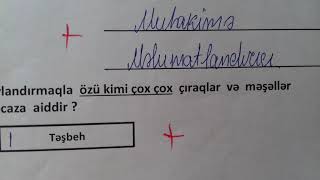 Muhakimə
Məlumatlandırıcı
landırmaqla özü kimi çox çox çıraqlar və məşəllər
caza aiddir ?
| Təşbeh